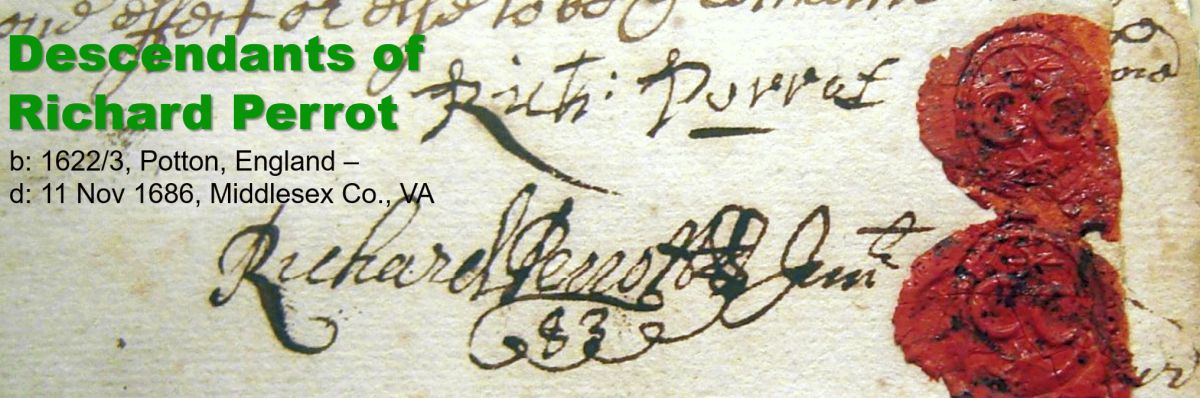 and effect or else to be
Descendants of
Richard Perrot
b: 1622/3, Potton, England –
d: 11 Nov 1686, Middlesex Co., VA
Rich: Perrot
Richard Perrott Junr
83